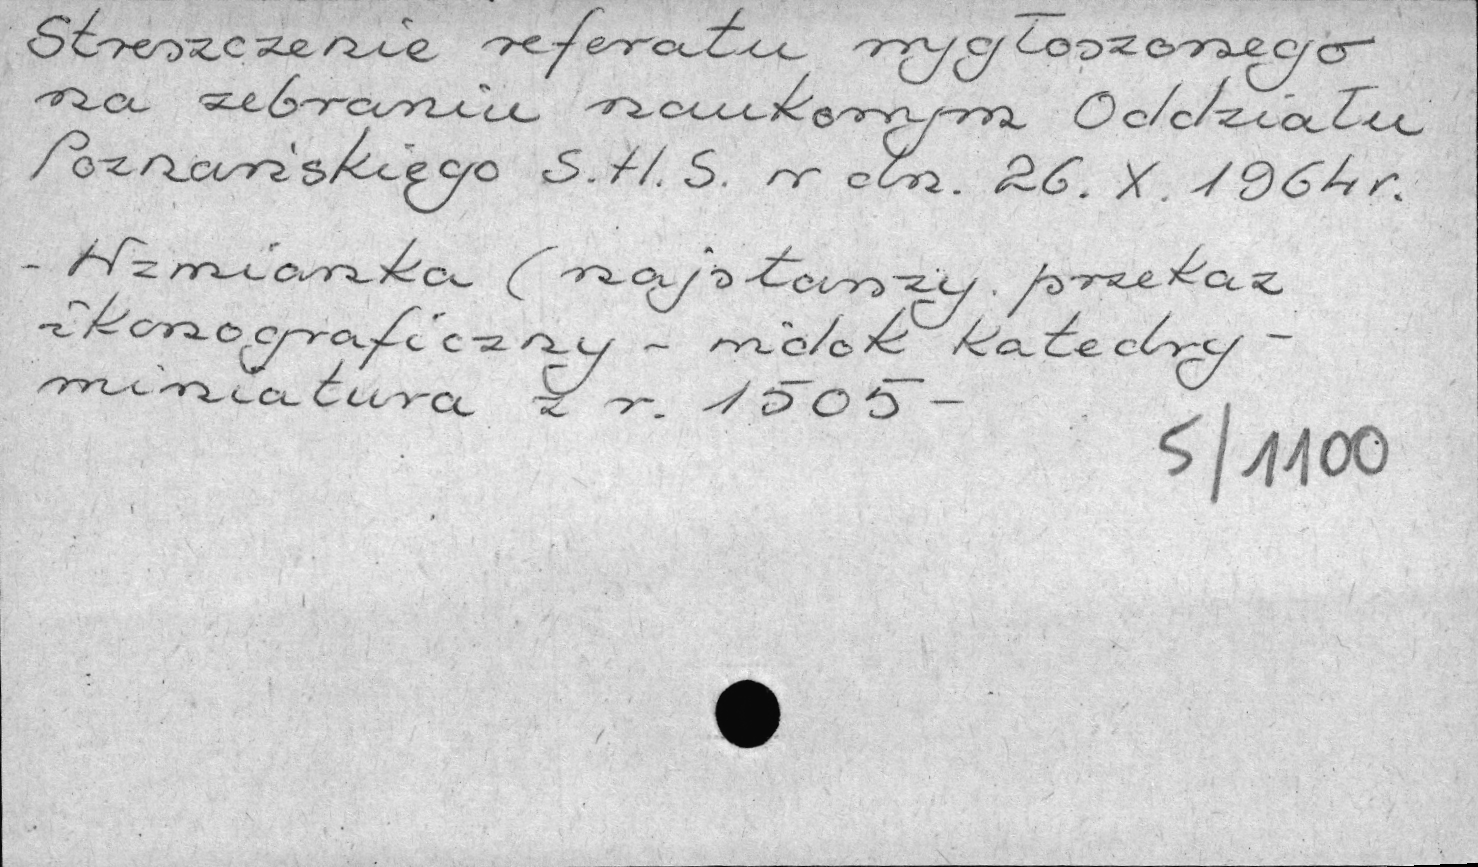 Streszczenie referatu wygłoszonego
na zebraniu naukowym Oddziału
Poznańskiego S.H.S. w dn. 26. X. 1964 r.
- Wzmianka (najstarszy przekaz
ikonograficzny - widok Katedry -
miniatura z r. 1505 -
S/1100